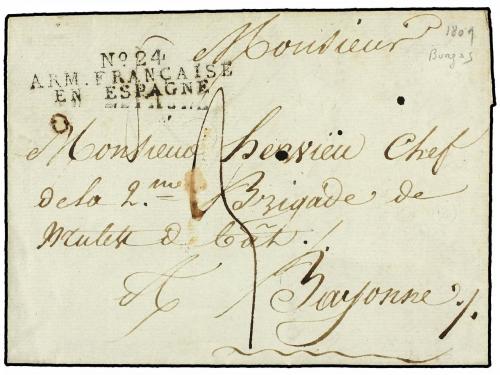 Monsieur
1809
Burgos
No 24
ARM. FRANÇAISE
EN ESPAGNE
Monsieur hervieu Chef
de la 2.me Brigade de
Mulets de Bât.
A Bayonne